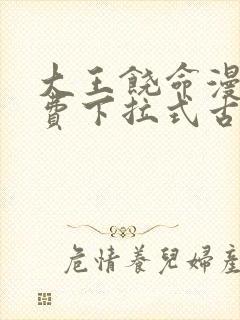 大王饶命漫
费下拉式古
危情養兒婦產